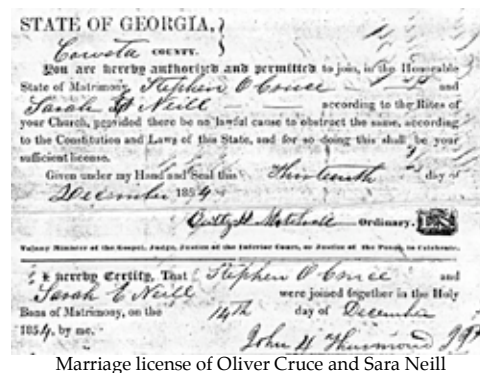 STATE OF GEORGIA,
Coweta COUNTY.
You are hereby authorized and permitted to join, in the Honorable
State of Matrimony, Stephen O Cruce and
Sarah Neill according to the Rites of
your Church, provided there be no lawful cause to obstruct the same, according
to the Constitution and Laws of this State, and for so doing this shall be your
sufficient license.
Given under my Hand and Seal this Thirteenth day of
December 1854
Mitchell Ordinary.
To any Minister of the Gospel, Judge, Justice of the Inferior Court, or Justice of the Peace, to Celebrate.
I hereby Certify, That Stephen O Cruce and
Sarah E Neill were joined together in the Holy
Bans of Matrimony, on the 14th day of December
1854, by me. John H Thurmond JP
Marriage license of Oliver Cruce and Sara Neill